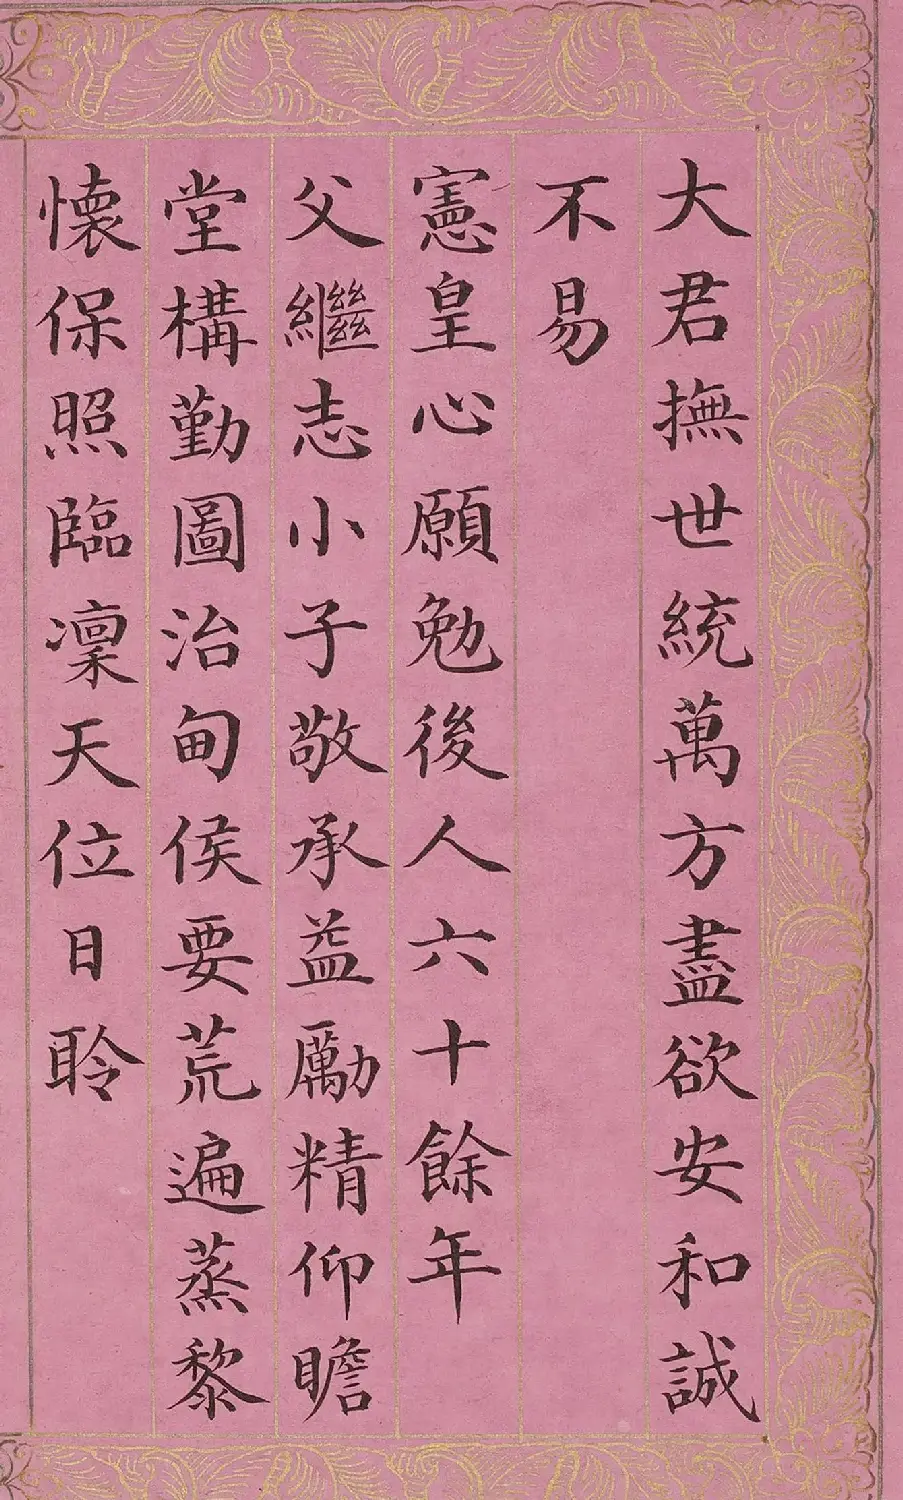 大君撫世統萬方盡欲安和誠
不易
憲皇心願勉後人六十餘年
父繼志小子敬承益勵精仰瞻
堂構勤圖治甸侯要荒遍蒸黎
懐保照臨凜天位日聆